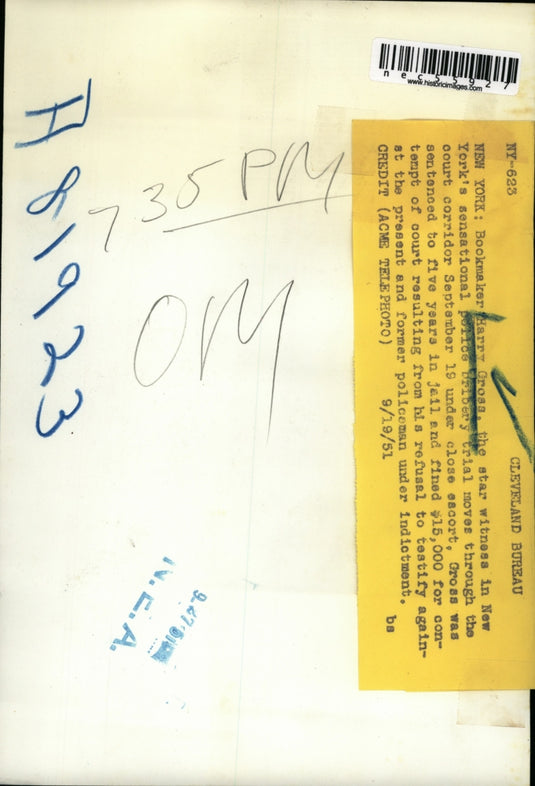 nec55927
www.historicimages.com
A81923
735 PM
OM
NY-623 CLEVELAND BUREAU
NEW YORK: Bookmaker Harry Gross, the star witness in New
York's sensational police bribery trial moves through the
court corridor September 19 under close escort. Gross was
sentenced to five years in jail and fined $15,000 for con-
tempt of court resulting from his refusal to testify again-
st the present and former policeman under indictment.
CREDIT (ACME TELEPHOTO) 9/19/51 bs
N.E.A.